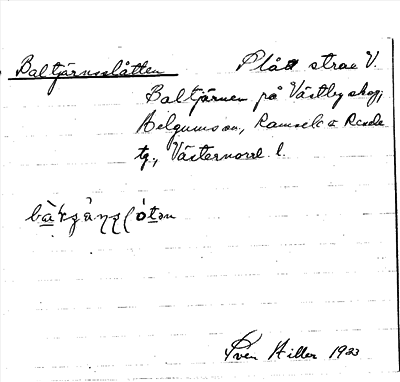 Baltjärnsslåtten Slått strax V.
Baltjärnen på Västbyskog,
Helgumson, Ramsele o Resele
tg., Västernorrl. l.
Sven Hiller 1933